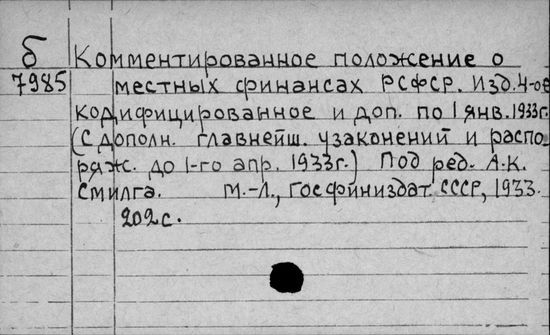 б Комментированное положение о
7985 местных финансах РСФСР. Изд. 4-ое
кодифицированное и доп. по 1 янв. 1933г.
(С дополн. главнейш. узаконений и распо-
ряж. до 1-го апр. 1933г.) Под ред. А.К.
Смилга. М.-Л., Госфиниздат СССР, 1933.
202 с.